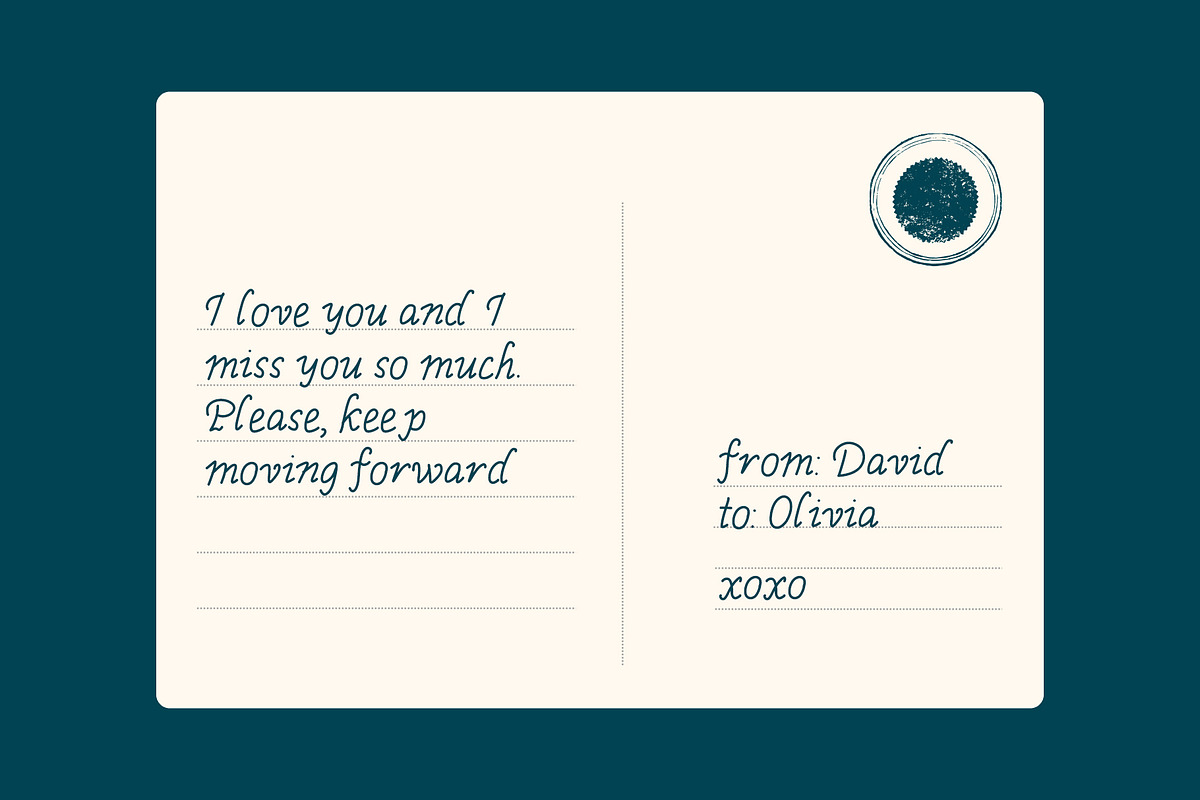 I love you and I
miss you so much.
Please, keep
moving forward
from: David
to: Olivia
xoxo